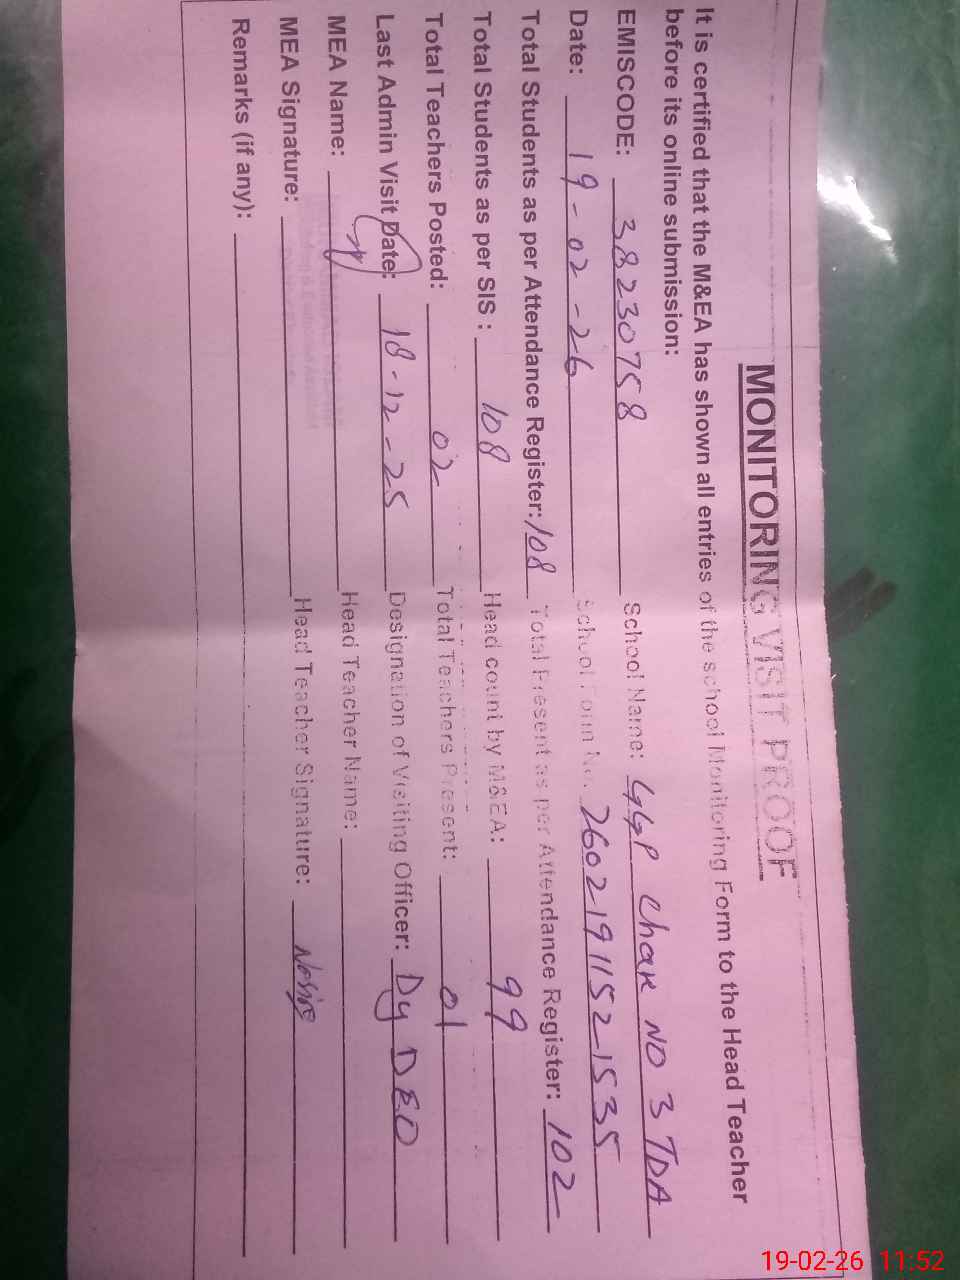 MONITORING VISIT PROOF
It is certified that the M&EA has shown all entries of the school Monitoring Form to the Head Teacher
before its online submission:
EMISCODE: 38230758 School Name: GGP Chak NO 3 TDA
Date: 19-02-26 School Form No. 26021911521535
Total Students as per Attendance Register: 108 Total Present as per Attendance Register: 102
Total Students as per SIS : 108 Head count by M&EA: 99
Total Teachers Posted: 02 Total Teachers Present: 01
Last Admin Visit Date: 18-12-25 Designation of Visiting Officer: Dy DEO
MEA Name: Head Teacher Name:
MEA Signature: Head Teacher Signature:
Remarks (if any):
19-02-26 11:52